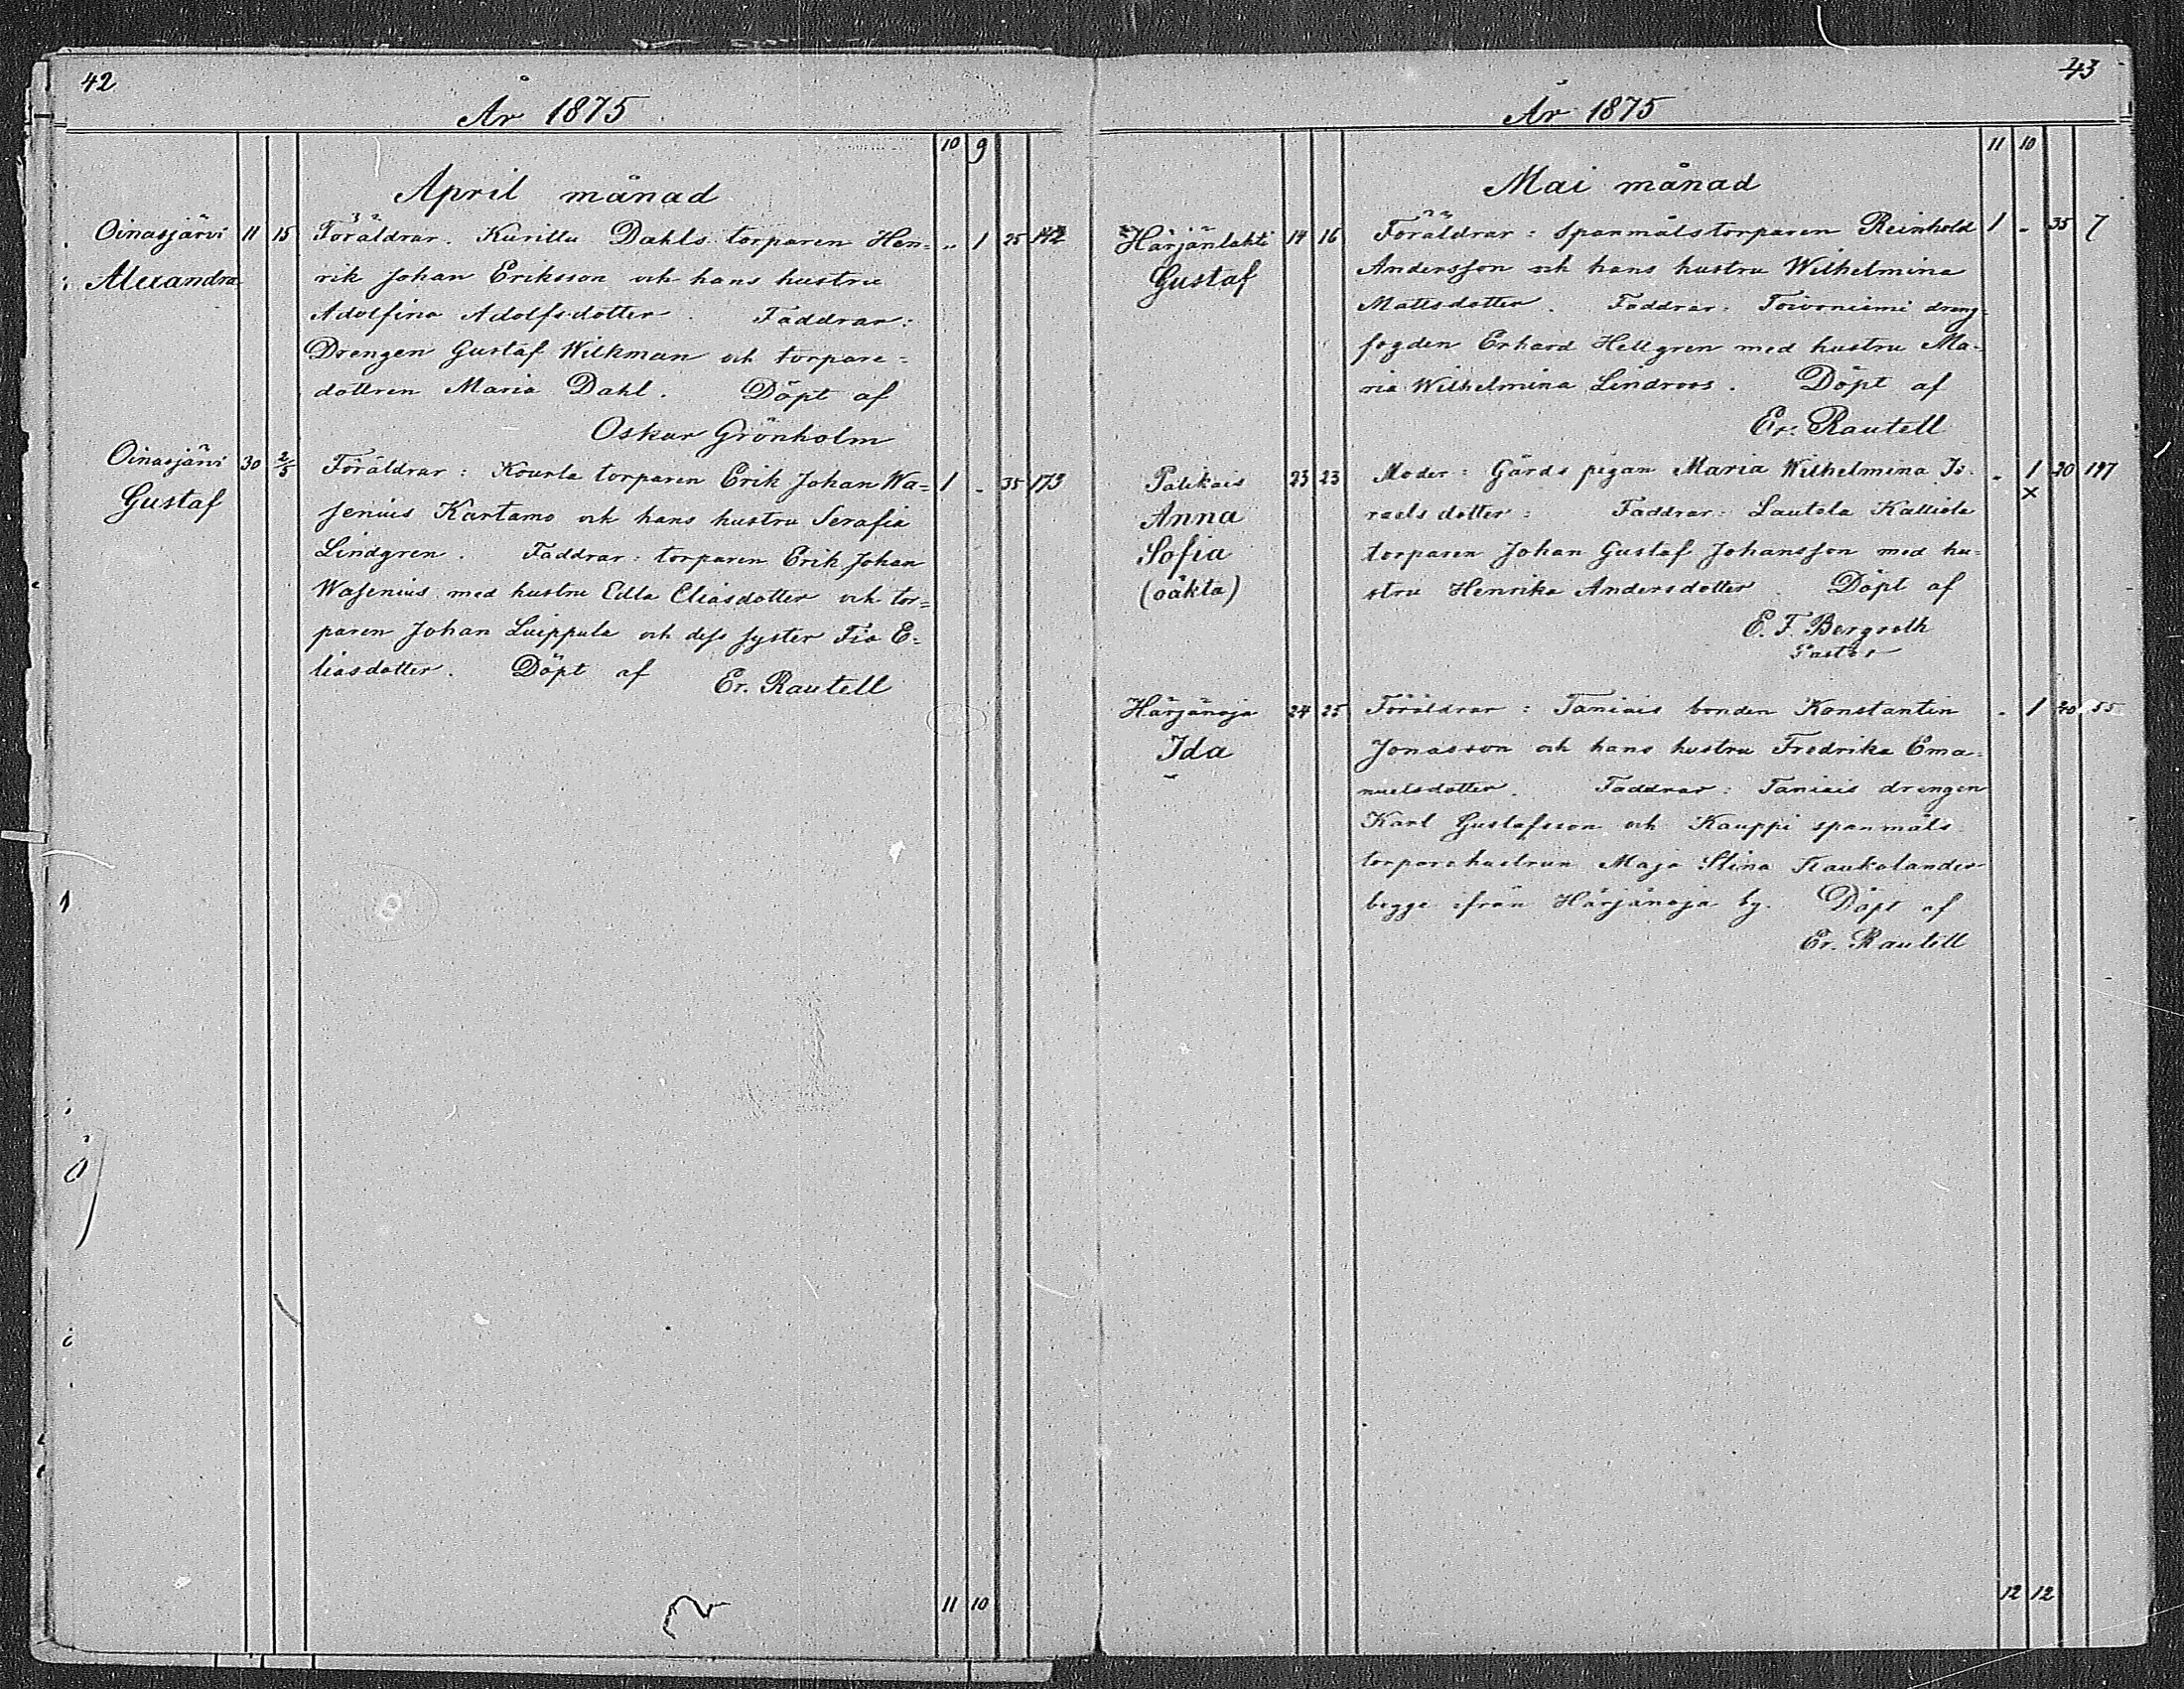 42
År 1875
10 9
April månad
Oinasjärvi 11 15 Föräldrar. Kurillu Dahls torparen Hen= " 1 25 142
Alexandra rik Johan Eriksson och hans hustru
Adolfina Adolfsdotter. Faddrar:
Drengen Gustaf Wilkman och torpare=
dottren Maria Dahl. Döpt af
Oskar Grönholm
Oinasjärvi 30 2/5 Föräldrar: Kourla torparen Erik Johan Wa= 1 - 35 173
Gustaf senius Kartamo och hans hustru Serafia
Lindgren. Faddrar: torparen Erik Johan
Wasenius med hustru Edla Eliasdotter och tor=
paren Johan Luippula och dess syster Fia E=
liasdotter. Döpt af Er. Rautell
11 10
43
År 1875
11 10
Mai månad
Härjänlahti 14 16 Föräldrar: Spanmålstorparen Reinhold 1 - 35 7
Gustaf Andersson och hans hustru Wilhelmina
Mattsdotter. Faddrar: Toivoniemi dreng=
fogden Erhard Hellgren med hustru Ma=
ria Wilhelmina Lindroos. Döpt af
Er. Rautell
23 23 Moder: Gårds pigan Maria Wilhelmina Is- - 1 20 197
Anna raels dotter: Faddrar: Lautela Kalliola x
Sofia torparen Johan Gustaf Johansson med hu=
(oäkta) stru Henrika Andersdotter. Döpt af
E. F. Bergroth
Pastor
Härjänoja 24 25 Föräldrar: Taniais bonden Konstantin - 1 20 55
Ida Jonasson och hans hustru Fredrika Ema=
nuelsdotter. Faddrar: Taniais drengen
Karl Gustafsson och Kauppi spanmåls
torparehustrun Maja Stina Kaukolander
begge ifrån Härjänoja by. Döpt af
Er. Rautell
12 12